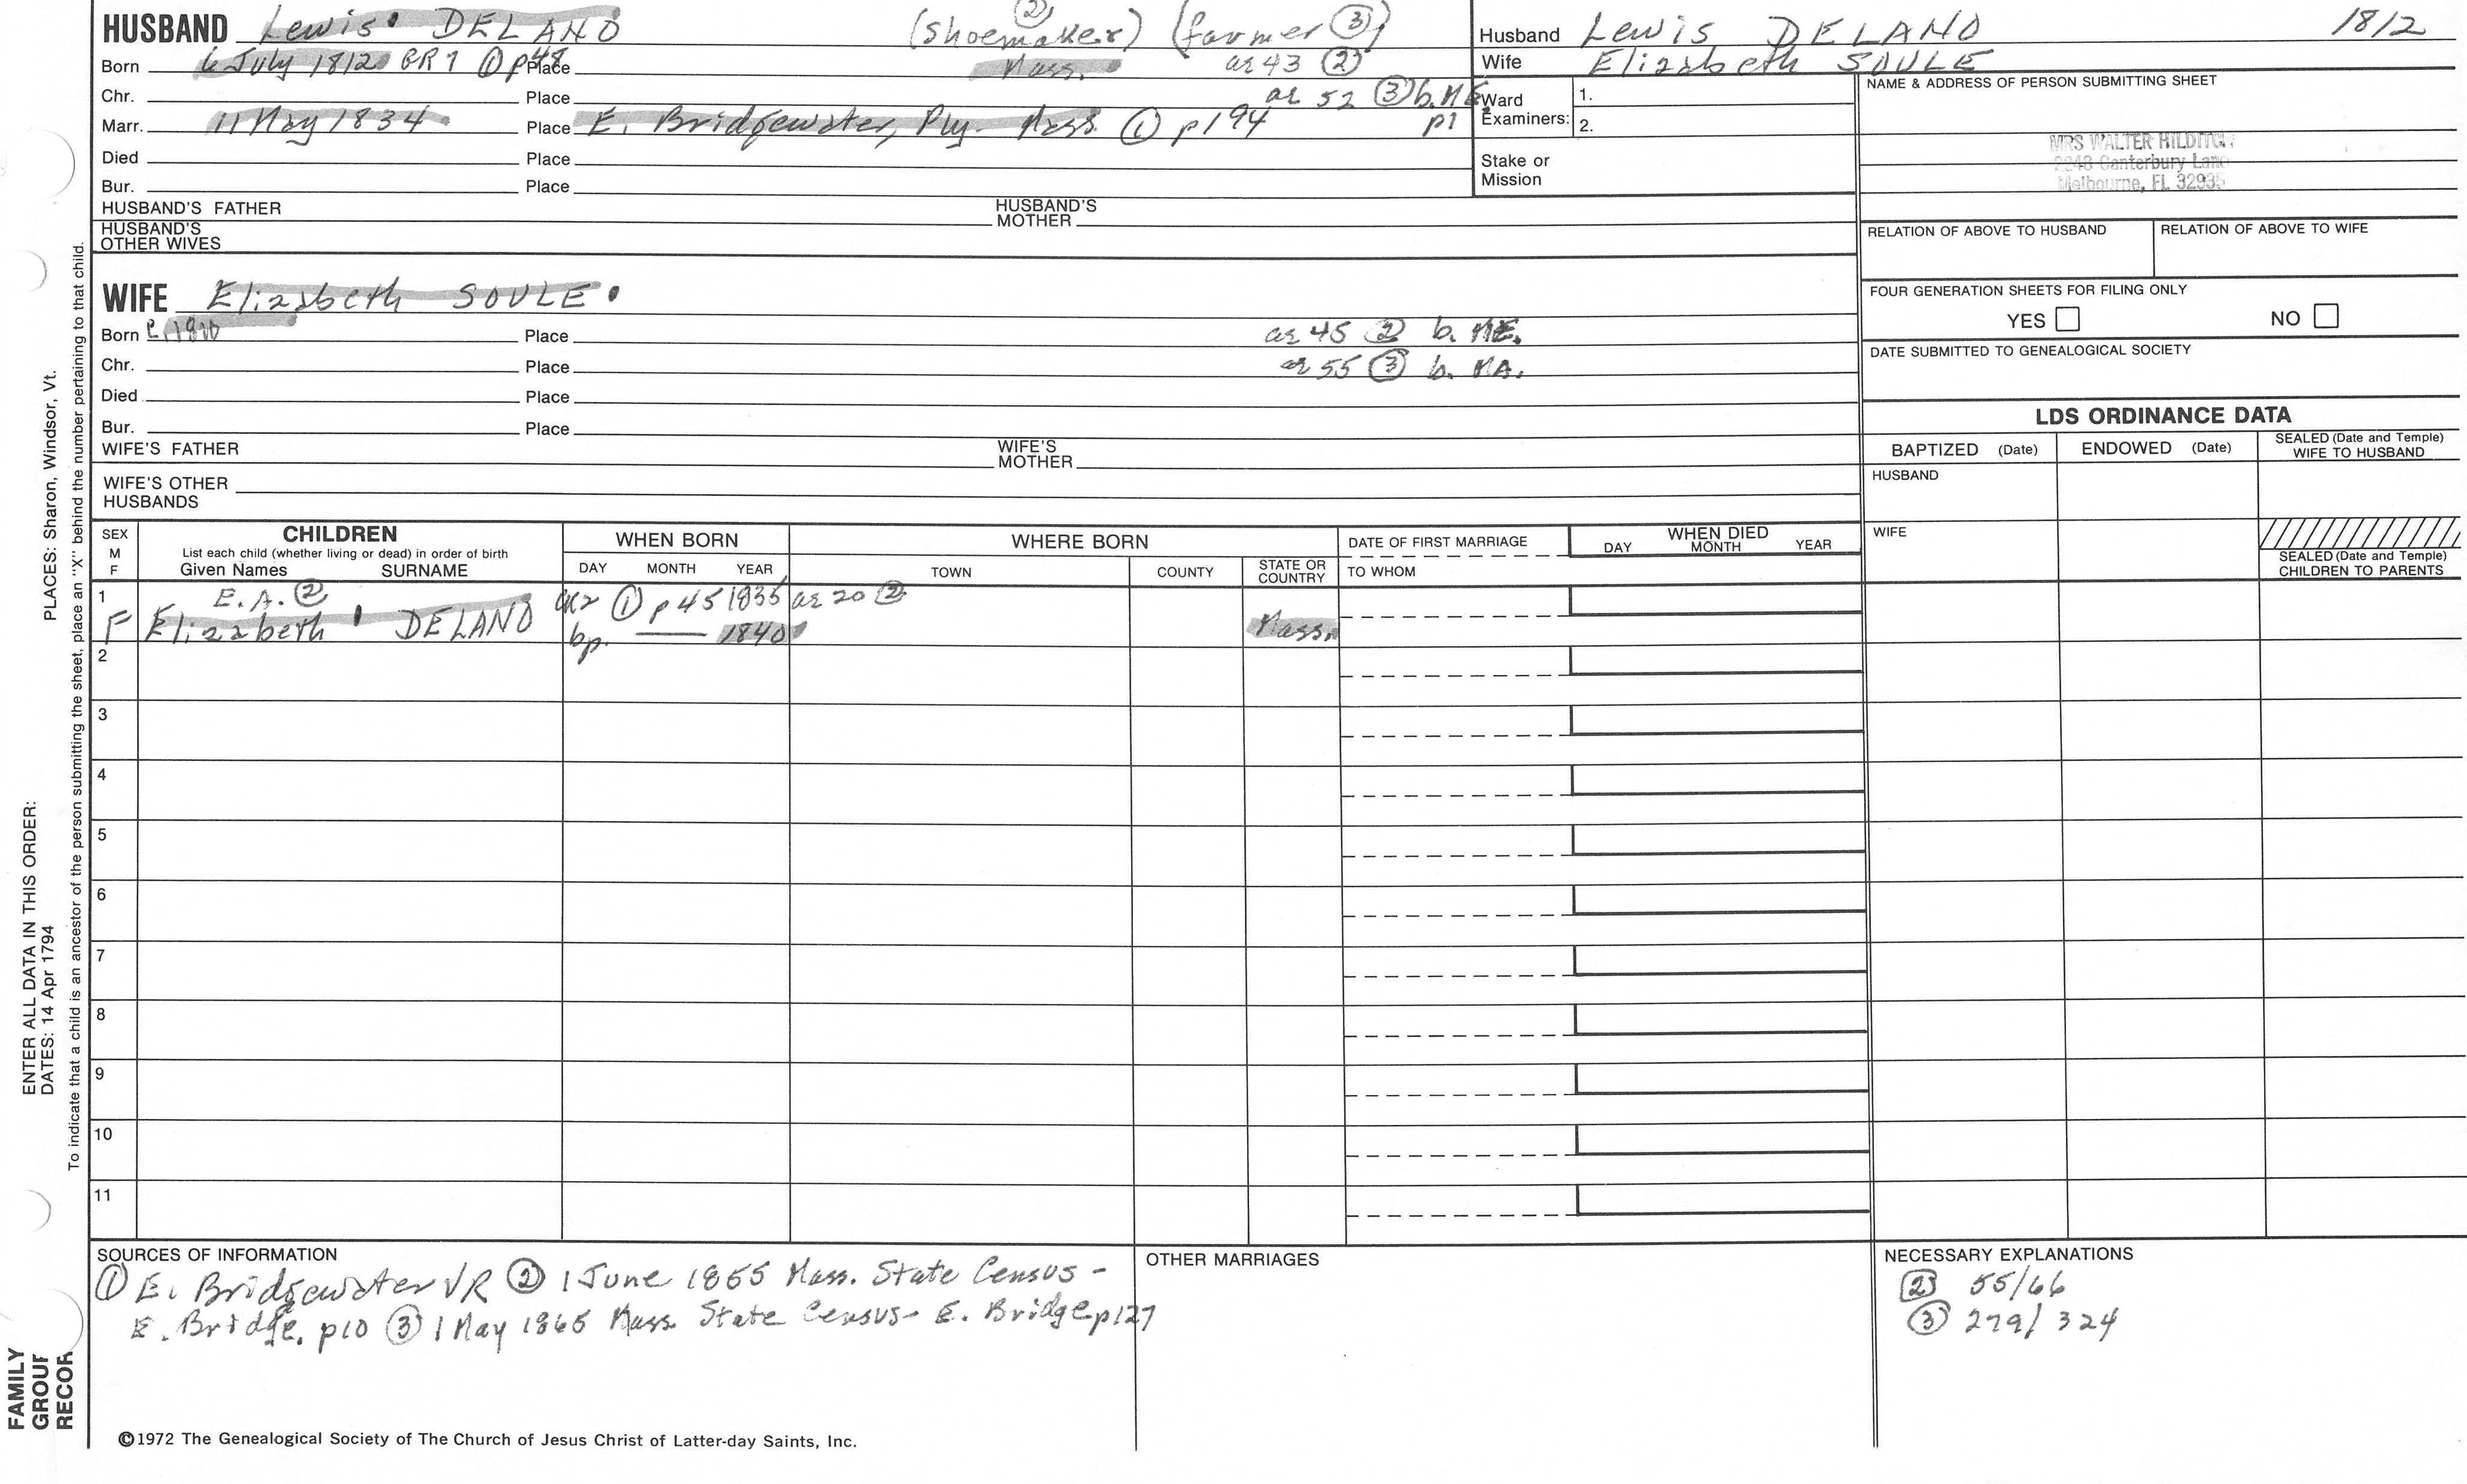 HUSBAND Lewis DELANO (shoemaker) ② (farmer ③)
Born 6 July 1812 GR1 ① p48 Place Mass. ae 43 ②
Chr. Place ae 52 ③ b. ME
Marr. 11 May 1834 Place E. Bridgewater, Ply. Mass ① p194 p1
Died Place
Bur. Place
HUSBAND'S FATHER HUSBAND'S MOTHER
HUSBAND'S OTHER WIVES
Husband Lewis DELANO 1812
Wife Elizabeth SOULE
Ward Examiners: 1.
2.
Stake or Mission
NAME & ADDRESS OF PERSON SUBMITTING SHEET
MRS WALTER HILDITCH
2248 Canterbury Lane
Melbourne, FL 32935
RELATION OF ABOVE TO HUSBAND RELATION OF ABOVE TO WIFE
FOUR GENERATION SHEETS FOR FILING ONLY
YES NO
DATE SUBMITTED TO GENEALOGICAL SOCIETY
WIFE Elizabeth SOULE
Born c. 1810 Place ae 45 ② b. ME.
Chr. Place ae 55 ③ b. MA.
Died Place
Bur. Place
WIFE'S FATHER WIFE'S MOTHER
WIFE'S OTHER HUSBANDS
LDS ORDINANCE DATA
BAPTIZED (Date) ENDOWED (Date) SEALED (Date and Temple) WIFE TO HUSBAND
HUSBAND
WIFE
SEALED (Date and Temple) CHILDREN TO PARENTS
SEX M F CHILDREN
List each child (whether living or dead) in order of birth
Given Names SURNAME
WHEN BORN
DAY MONTH YEAR
WHERE BORN
TOWN COUNTY STATE OR COUNTRY
DATE OF FIRST MARRIAGE
TO WHOM
WHEN DIED
DAY MONTH YEAR
1 E.A. ② ① p45 1835 ae 20 ②
F Elizabeth DELANO bp. 1840 Mass.
2
3
4
5
6
7
8
9
10
11
SOURCES OF INFORMATION
① E. Bridgewater VR ② 1 June 1855 Mass. State Census -
E. Bridge. p10 ③ 1 May 1865 Mass State Census - E. Bridge p127
OTHER MARRIAGES
NECESSARY EXPLANATIONS
2 55/66
③ 279/324
©1972 The Genealogical Society of The Church of Jesus Christ of Latter-day Saints, Inc.
PLACES: Sharon, Windsor, Vt.
ENTER ALL DATA IN THIS ORDER:
DATES: 14 Apr 1794
To indicate that a child is an ancestor of the person submitting the sheet, place an "X" behind the number pertaining to that child.
FAMILY
GROUP
RECOR